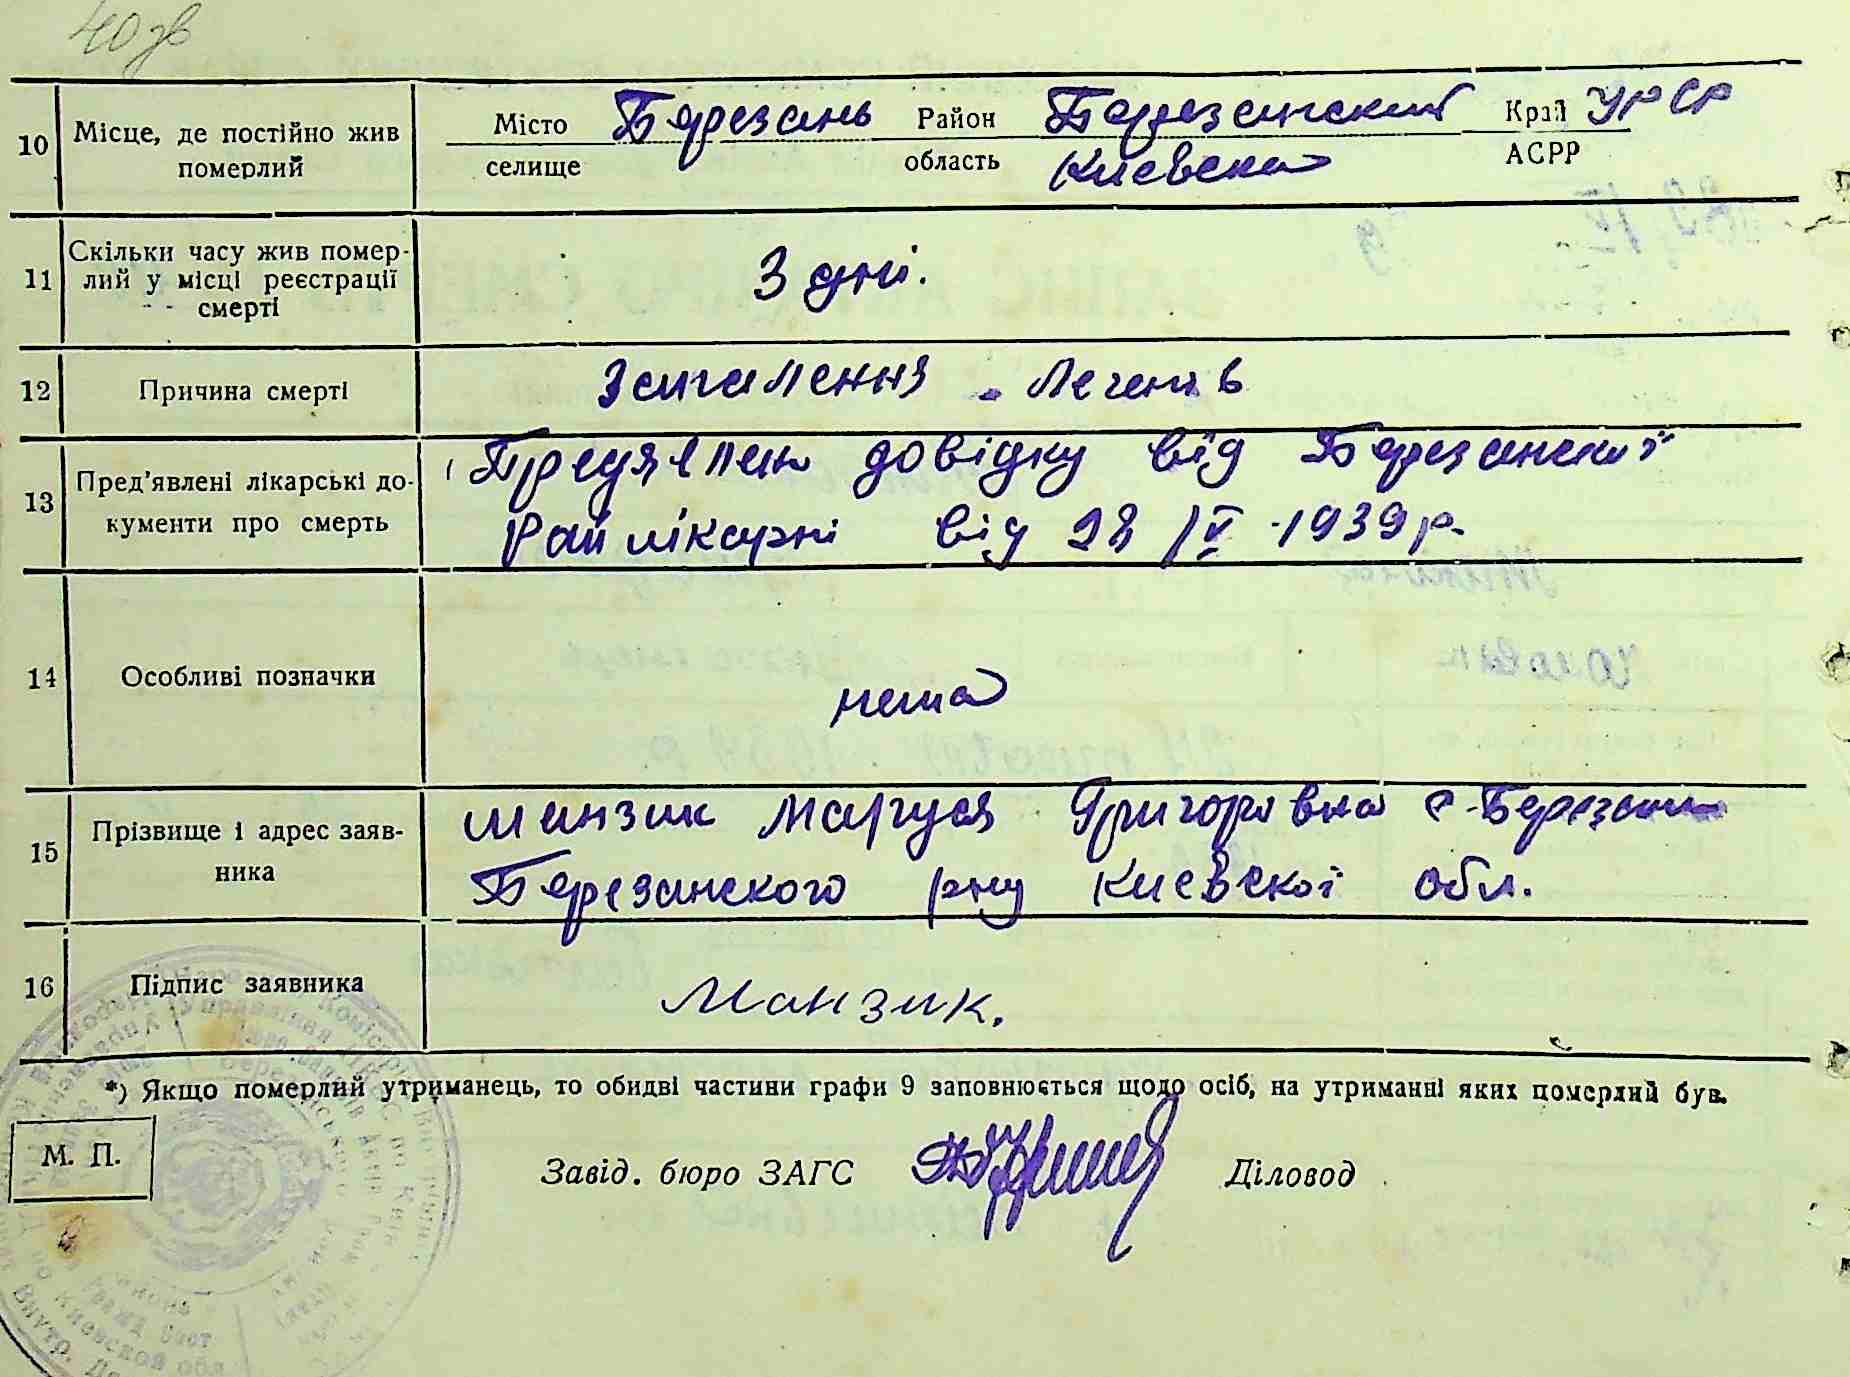 40 зв
10 Місце, де постійно жив померлий Місто Березань Район Березанский Край УРСР
селище область Киевска АСРР
11 Скільки часу жив помер-
лий у місці реєстрації
смерті
3 дні.
12 Причина смерті Запалення Легенів
13 Пред'явлені лікарські до-
кументи про смерть
Предявлено довідку від Березанскиї
Райлікарні від 28 IV 1939 р.
14 Особливі позначки нема
15 Прізвище і адрес заяв-
ника
Манзик Маруся Григоровна с-Березань
Березанского рну Киевскої обл.
16 Підпис заявника Манзик.
*) Якщо померлий утриманець, то обидві частини графи 9 заповнюється щодо осіб, на утриманні яких померлий був.
М. П. Завід. бюро ЗАГС Діловод